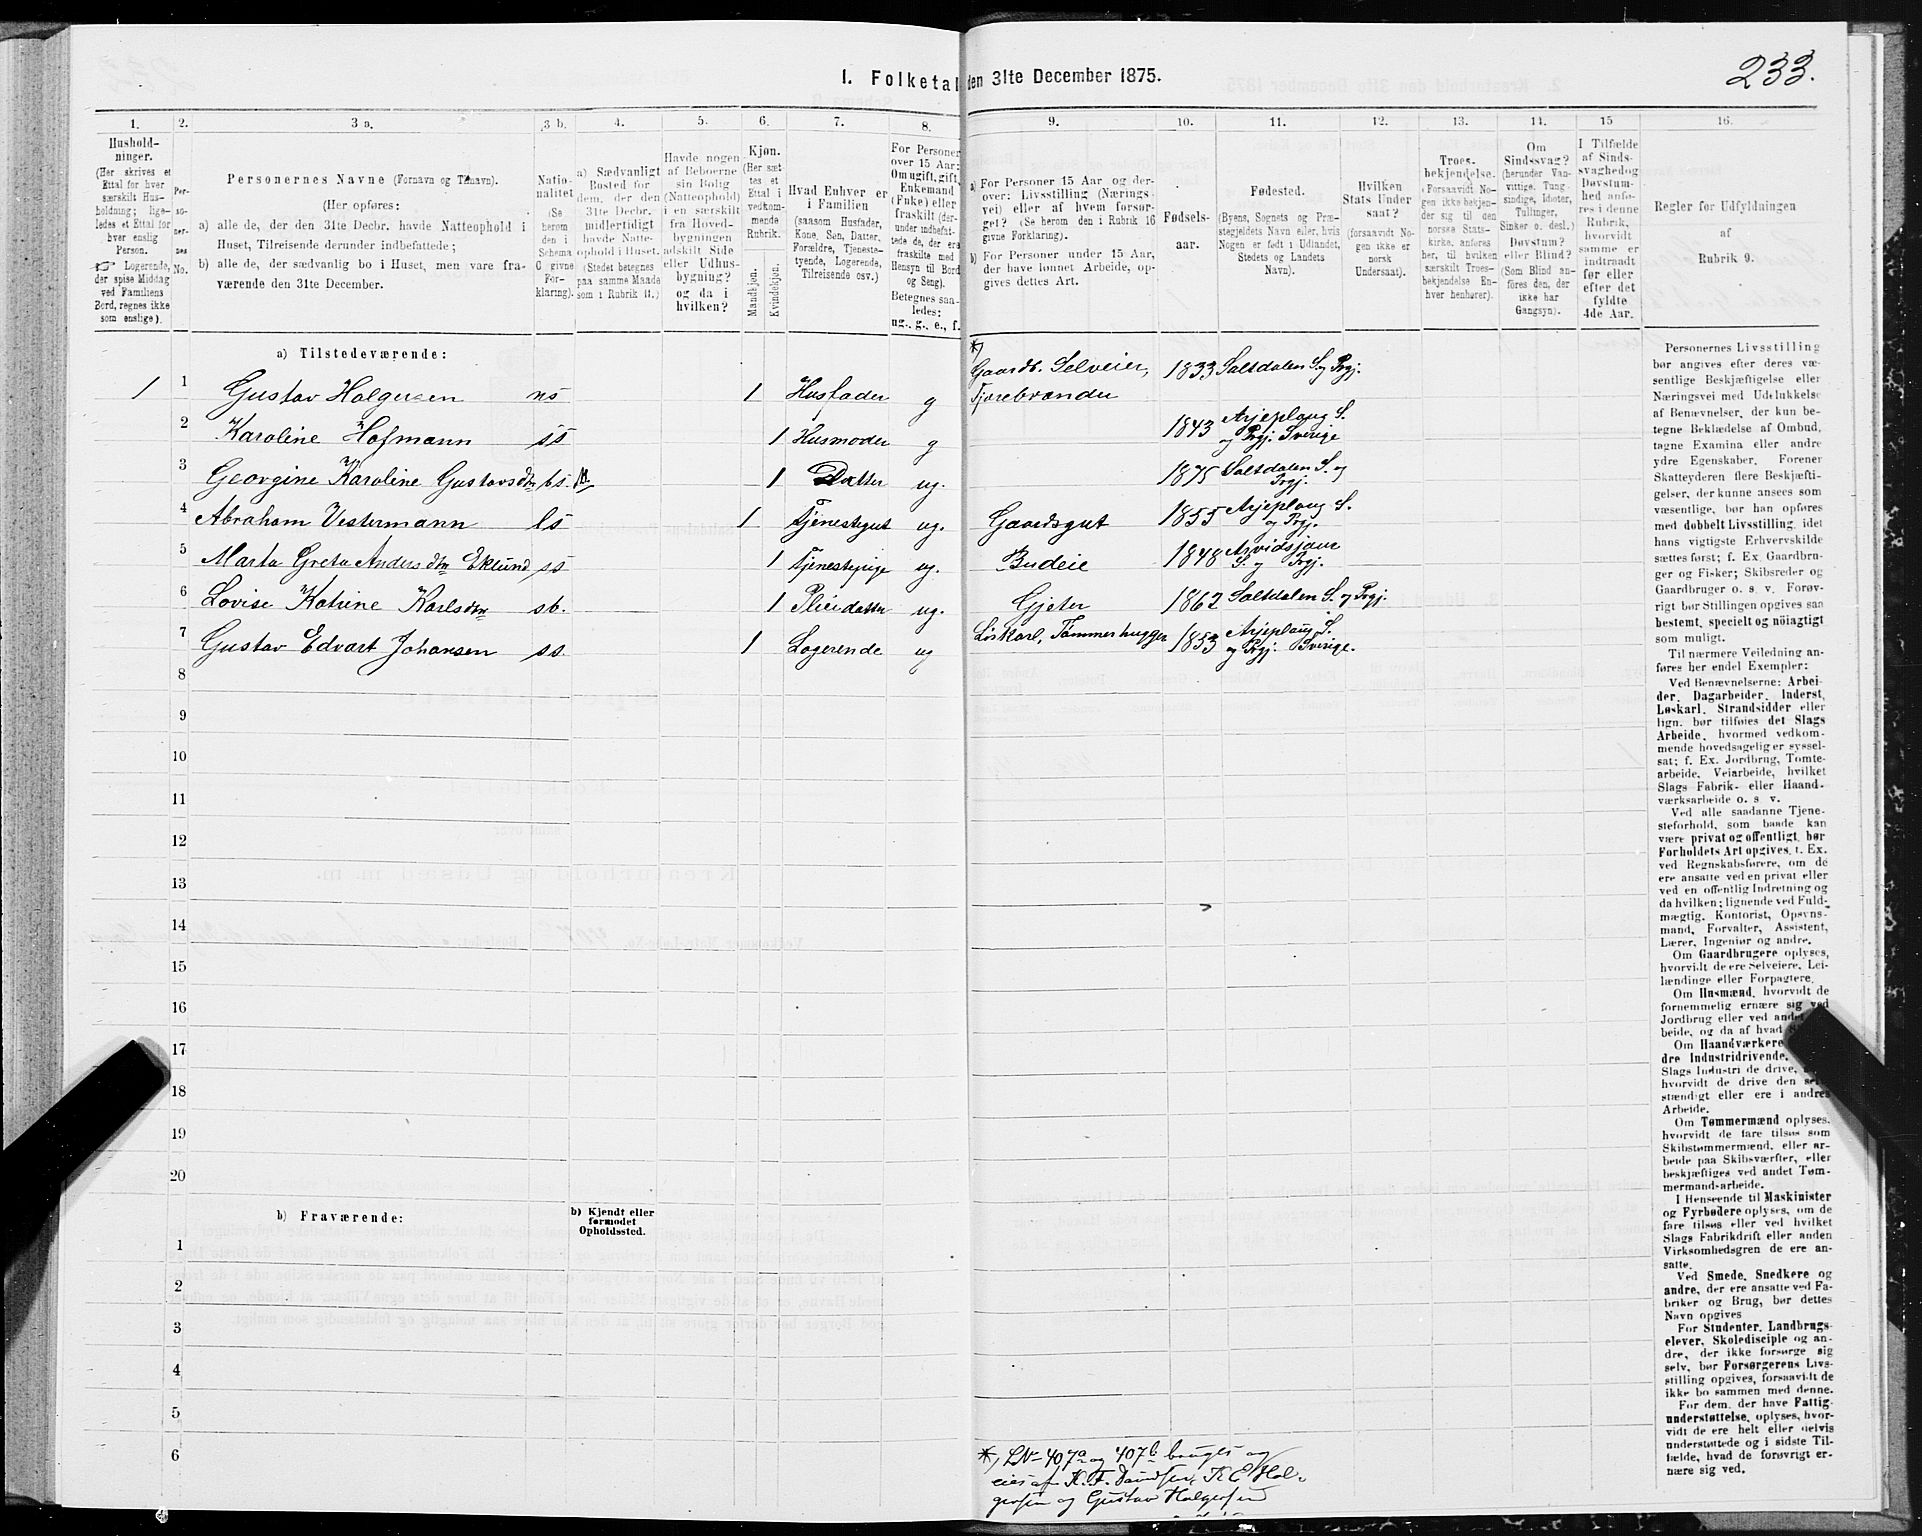 233.
1. Folketal den 31te December 1875.
1. 2. 3 a. 3 b. 4. 5. 6. 7. 8. 9. 10. 11. 12. 13. 14. 15 16.
Hushold-
ninger.
(Her skrives et
Ettal for hver
særskilt Hus-
holdning; lige-
ledes et Ettal for
hver enslig
Person.
Logerende,
der spise Middag
ved Familiens
Bord, regnes ikke
som enslige).
Per-
so-
ner-
nes
No.
Personernes Navne (Fornavn og Tilnavn).
(Her opføres:
a) alle de, der den 31te Decbr. havde Natteophold i
Huset, Tilreisende derunder indbefattede;
b) alle de, der sædvanlig bo i Huset, men vare fra-
værende den 31te December.
Natio-
nalitet
(Se
herom
den i
Schema
C givne
For-
klaring).
a) Sædvanligt
Bosted for
dem, der den
31te Decbr.
midlertidigt
havde Natte-
ophold i Huset.
(Stedet betegnes
paa samme Maade
som i Rubrik 11.)
Havde nogen
af Beboerne
sin Bolig
(Natteophold)
i en særskilt
fra Hoved-
bygningen
adskilt Side
eller Udhus-
bygning?
og da i
hvilken?
Kjøn.
(Her sæt-
tes et
Ettal i
vedkom-
mende
Rubrik.
Mandkjøn.
Kvindekjøn.
Hvad Enhver er
i Familien
(saasom Husfader,
Kone, Søn, Datter,
Forældre, Tjeneste-
tyende, Logerende,
Tilreisende osv.)
For Personer
over 15 Aar:
Om ugift, gift,
Enkemand
(Enke) eller
fraskilt (der-
under indbefat-
tede de, der ere
fraskilte med
Hensyn til Bord
og Seng).
Betegnes saa-
ledes:
ug., g., e., f.
a) For Personer 15 Aar og der-
over: Livsstilling (Nærings-
vei) eller af hvem forsør-
get? (Se herom den i Rubrik 16
givne Forklaring).
b) For Personer under 15 Aar,
der have lønnet Arbeide, op-
gives dettes Art.
Fødsels-
aar.
Fødested.
(Byens, Sognets og Præ-
stegjeldets Navn eller, hvis
Nogen er født i Udlandet,
Stedets og Landets
Navn).
Hvilken
Stats Under
saat?
(forsaavidt No-
gen ikke er
norsk
Undersaat).
Troes-
bekjendelse.
(Forsaavidt No-
gen ikke bekjen-
der sig til den
norske Stats-
kirke, anføres
her, til hvilken
særskilt Troes-
bekjendelse En-
hver henhører).
Om
Sindssvag?
(herunder Van-
vittige, Tung-
sindige, Idioter,
Tullinger,
Sinker o. desl.)
Døvstum?
eller Blind?
(Som Blind an-
føres den, der
ikke har
Gangsyn).
I Tilfælde
af Sinds-
svaghed og
Døvstum-
hed anfø-
res i denne
Rubrik,
hvorvidt
samme er
indtraadt
før eller
efter det
fyldte
4de Aar.
Regler for Udfyldningen
af
Rubrik 9.
a) Tilstedeværende:
1 1 Gustav Holgersen ns 1 Husfader g *) Gaardb. Selveier, Tjærebrænder 1833 Saltdalen S. og Prgj.
2 Karoline Hofmann ss 1 Husmoder g 1843 Arjeploug S. og Prgj. Sverige
3 Georgine Karoline Gustavsdtr bs. 1 Datter ug. 1875 Saltdalen S. og Prgj.
4 Abraham Vestermann ls 1 Tjenestegut ug. Gaardsgut 1855 Arjeploug S. og Prgj.
5 Marta Greta Andersdtr Eklund ss 1 Tjenestepige ug. Budeie 1848 Arvidsjaur S. og Prgj.
6 Lovise Katrine Karlsdtr sb. 1 Pleiedatter ug. Gjeter 1862 Saltdalen S. og Prgj.
7 Gustav Edvart Johansen ss. 1 Logerende ug Løskarl, Tømmerhugger 1853 Arjeploug S. og Prgj. Sverige.
8
9
10
11
12
13
14
15
16
17
18
19
20
b) Fraværende:
b) Kjendt eller
formodet
Opholdssted.
1
2
3
4
5
6
*) LN 407a og 407b bruges og
eies af K. F. Davidsen, K E Hol-
gersen og Gustav Holgersen
Personernes Livsstilling
bør angives efter deres væ-
sentlige Beskjæftigelse eller
Næringsvei med Udelukkelse
af Benævnelser, der kun be-
tegne Beklædelse af Ombud,
tagne Examina eller andre
ydre Egenskaber. Forener
Skatteyderen flere Beskjæfti-
gelser, der kunne ansees som
væsentlige, bør han opføres
med dobbelt Livsstilling, idet
hans vigtigste Erhvervskilde
sættes først; f. Ex. Gaardbru-
ger og Fisker; Skibsreder og
Gaardbruger o. s. v. Forøv-
rigt bør Stillingen opgives saa
bestemt, specielt og nøiagtigt
som muligt.
Til nærmere Veiledning an-
føres her endel Exempler:
Ved Benævnelserne: Arbei-
der, Dagarbeider, Inderst,
Løskarl, Strandsidder eller
lign. bør tilføies det Slags
Arbeide, hvormed vedkom-
mende hovedsagelig er syssel-
sat; f. Ex. Jordbrug, Tomte-
arbeide, Veiarbeide, hvilket
Slags Fabrik- eller Haand-
værksarbeide o. s. v.
Ved alle saadanne Tjene-
steforhold, som baade kan
være privat og offentligt, bør
Forholdets Art opgives, f. Ex.
ved Regnskabsførere, om de
ere ansatte ved en privat eller
ved en offentlig Indretning og
da hvilken; lignende ved Fuld-
mægtig, Kontorist, Opsyns-
mand, Forvalter, Assistent,
Lærer, Ingeniør og andre.
Om Gaardbrugere oplyses,
hvorvidt de ere Selveiere, Lei-
lændinge eller Forpagtere.
Om Husmænd, hvorvidt de
fornemmelig ernære sig ved
Jordbrug eller ved andet
beide, og da af hvad
Om Haandværkere
dre Industridrivende,
Slags Industri de drive,
hvorvidt de drive den
stændigt eller ere i andres
Arbeide.
Om Tømmermænd oplyses,
hvorvidt de fare tilsøs som
Skibstømmermænd, eller ar-
beide paa Skibsværfter, eller
beskjæftiges ved andet Tøm-
mermandsarbeide.
I Henseende til Maskinister
og Fyrbødere oplyses, om de
fare tilsøs eller ved hvilket
Slags Fabrikdrift eller anden
Virksomhedsgren de ere an-
satte.
Ved Smede, Snedkere og
andre, der ere ansatte ved Fa-
briker og Brug, bør dettes
Navn opgives
For Studenter, Landbrugs-
elever, Skoledisciple og an-
dre, der ikke forsørge sig
selv, bør Forsørgerens Livs-
stilling opgives, forsaavidt de
ikke bo sammen med denne.
For dem, der have Fattig-
understøttelse, oplyses, hvor-
vidt de ere helt eller delvis
understøttede og i sidste Til-
fælde, hvad de forøvrigt er-
nære sig ved.